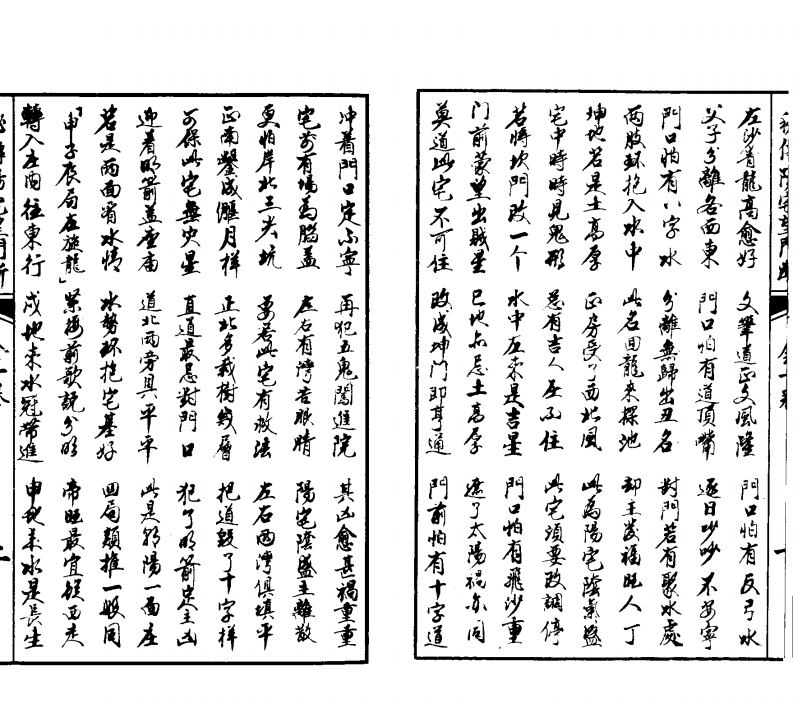 左沙青龍高愈好 文筆道正文風隆 門口怕有反弓水
父子分離各西東 門口怕有道頂嘴 逐日吵吵不安寧
門口怕有八字水 分離無歸出丑名 對門若有聚水處
两股环抱入水中 此名回龍來探池 却主發福旺人丁
坤地若是土高厚 正房受了西北風 此為陽宅陰氣盛
宅中時時見鬼形 总有吉人在不住 此宅須要改調停
若將坎門改一个 水中左來是吉星 門口怕有飛沙重
門前蒙望出賊星 巳地亦忌土高厚 遮了太陽禍亦同
莫道此宅不可住 改成坤門即亨通 門前怕有十字道
冲着門口定不寧 再犯五鬼闖進院 其凶愈甚禍重重
宅前有場為腦蓋 左右有灣若眼睛 陽宅陰盛主離散
更怕岸北三尖坑 要若此宅有救法 左右两灣俱填平
正南鑿成偃月样 正北多栽樹幾層 把道毀了十字样
可保此宅無灾星 直道最忌對門口 犯了明箭定主凶
迎着明箭盖座庙 道北两旁具平平 此是朝陽一面座
若是两面看水情 水勢环抱宅基好 四局類推一般同
「申子辰局在旋龍」 紧接前歌説分明 帝旺最宜從西走
轉入左酉往東行 戌地来水冠带進 申地来水是長生